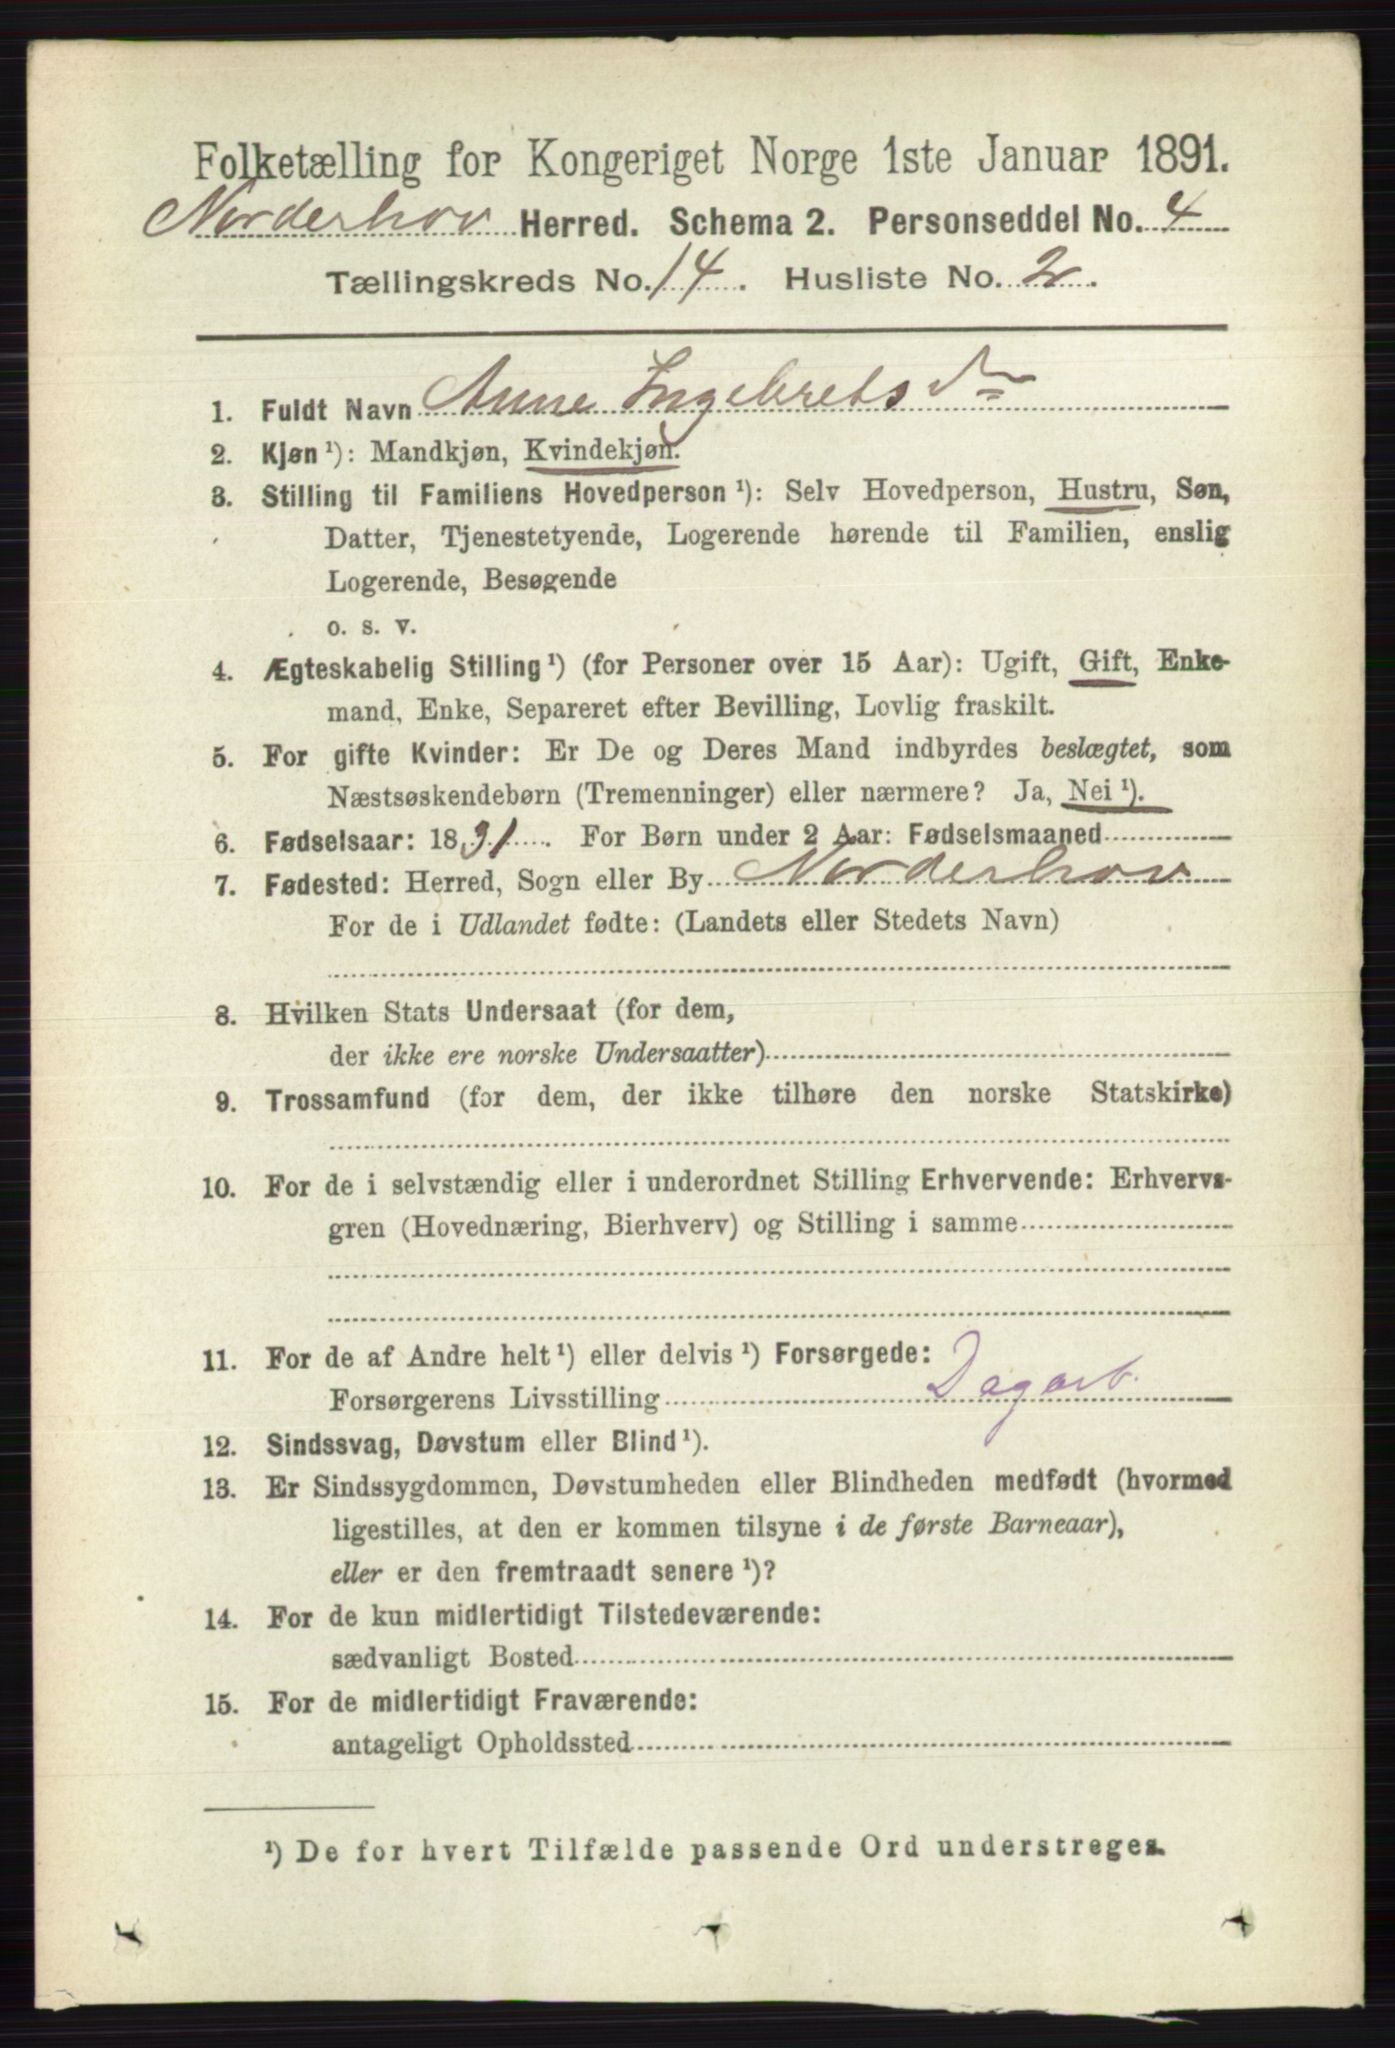 Folketælling for Kongeriget Norge 1ste Januar 1891.
Norderhov Herred. Schema 2. Personseddel No. 4
Tællingskreds No. 14. Husliste No. 2.
1. Fuldt Navn Anne Ingebretsdr
2. Kjøn ¹): Mandkjøn, Kvindekjøn.
3. Stilling til Familiens Hovedperson ¹): Selv Hovedperson, Hustru, Søn,
Datter, Tjenestetyende, Logerende hørende til Familien, enslig
Logerende, Besøgende
o. s. v.
4. Ægteskabelig Stilling ¹) (for Personer over 15 Aar): Ugift, Gift, Enke-
mand, Enke, Separeret efter Bevilling, Lovlig fraskilt.
5. For gifte Kvinder: Er De og Deres Mand indbyrdes beslægtet, som
Næstsøskendebørn (Tremenninger) eller nærmere? Ja, Nei ¹).
6. Fødselsaar: 1831. For Børn under 2 Aar: Fødselsmaaned
7. Fødested: Herred, Sogn eller By Norderhov
For de i Udlandet fødte: (Landets eller Stedets Navn)
8. Hvilken Stats Undersaat (for dem,
der ikke ere norske Undersaatter)
9. Trossamfund (for dem, der ikke tilhøre den norske Statskirke)
10. For de i selvstændig eller i underordnet Stilling Erhvervende: Erhvervs-
gren (Hovednæring, Bierhverv) og Stilling i samme
11. For de af Andre helt ¹) eller delvis ¹) Forsørgede:
Forsørgerens Livsstilling Dagarb.
12. Sindssvag, Døvstum eller Blind ¹).
13. Er Sindssygdommen, Døvstumheden eller Blindheden medfødt (hvormed
ligestilles, at den er kommen tilsyne i de første Barneaar),
eller er den fremtraadt senere ¹)?
14. For de kun midlertidigt Tilstedeværende:
sædvanligt Bosted
15. For de midlertidigt Fraværende:
antageligt Opholdssted
¹) De for hvert Tilfælde passende Ord understreges.